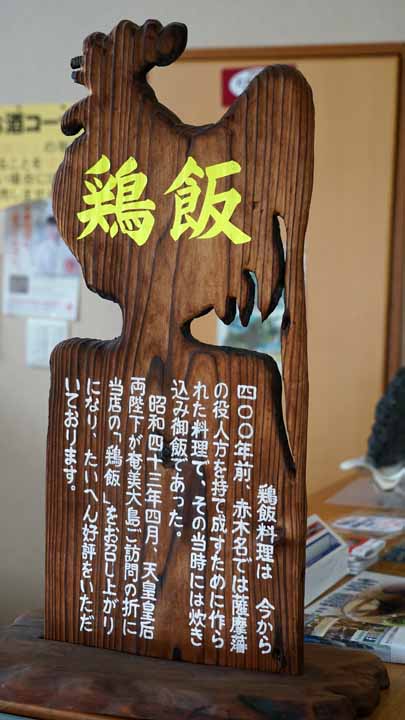 鶏飯
鶏飯料理は 今から
四〇〇年前、赤木名では薩摩藩
の役人方を持て成すために作ら
れた料理で、その当時には炊き
込み御飯であった。
昭和四十三年四月、天皇皇后
両陛下が奄美大島ご訪問の折に
当店の「鶏飯」をお召し上がり
になり、たいへん好評をいただ
いております。
お酒コー